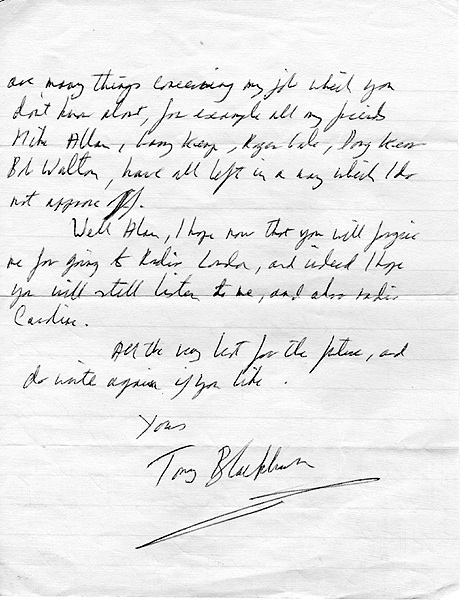 are many things concerning my job which you
don't know about, for example all my friends
Mike Allen, Garry Kemp, Roger Gale, Doug Kerr
Bob Walton, have all left in a way which I do
not approve of.
Well Alan, I hope now that you will forgive
me for going to Radio London, and indeed I hope
you will still listen to me, and also radio
Caroline.
All the very best for the future, and
do write again if you like.
Yours
Tony Blackburn